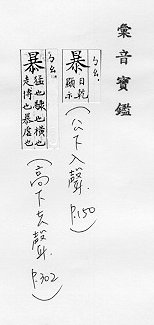 彙音寶鑑
ㄅㄠ
暴 日乾也顯示
(公下入聲 P.150)
ㄅㄠ
暴 猛也棘也橫也走博也暴虐也
(高下去聲 P.302)